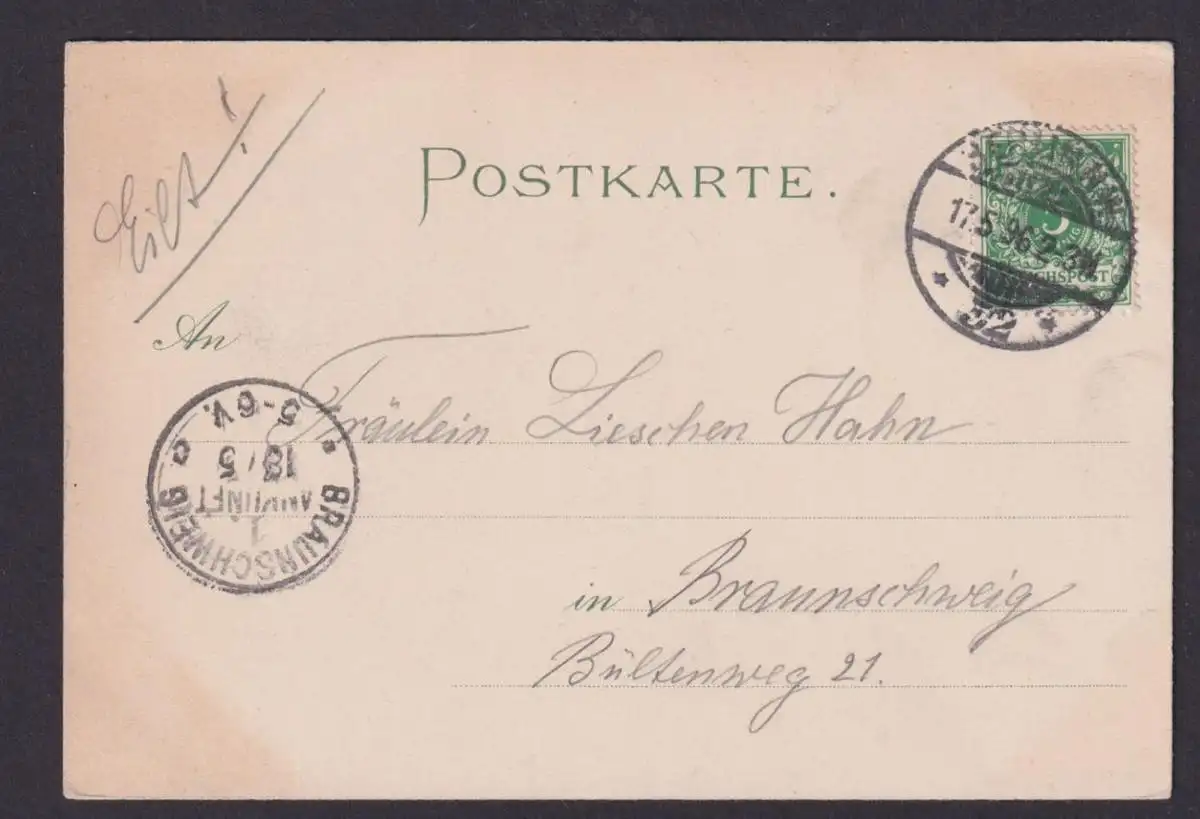 Eilt!
POSTKARTE.
17.5.96. 2-3N.
5
REICHSPOST
52
An
Fräulein Lieschen Hahn
5-6V.
18/5
ANKUNFT
1
BRAUNSCHWEIG
in Braunschweig
Bültenweg 21.